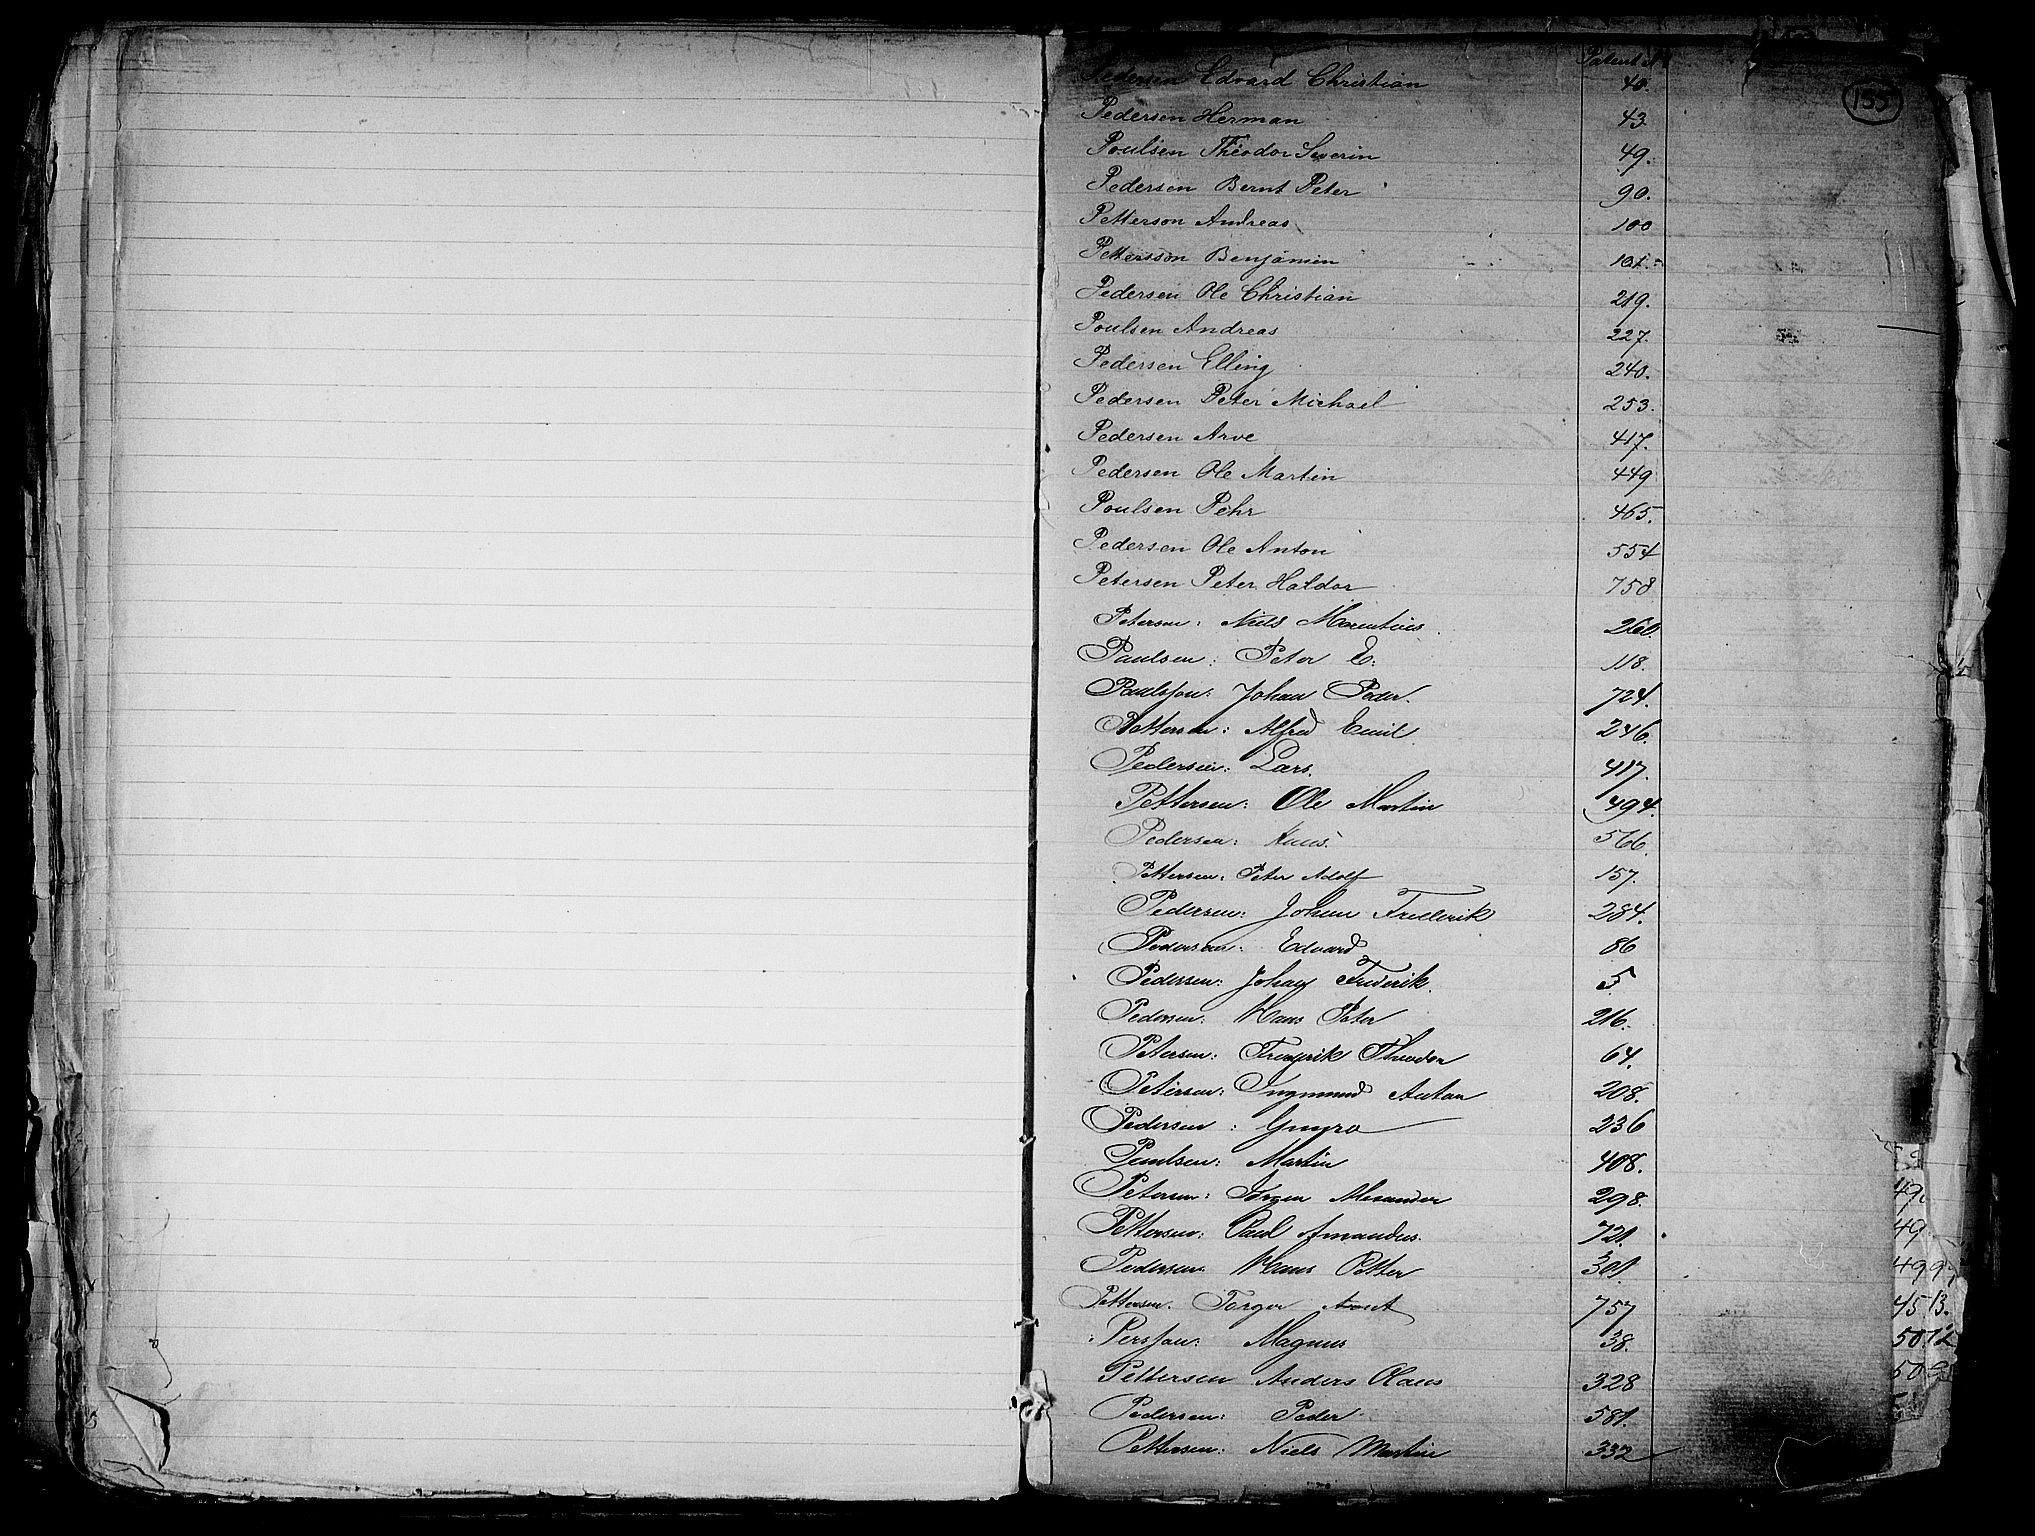 Patent №
155
Pedersen Edvard Christian 40.
Pedersen Herman 43
Poulsen Theodor Severin 49.
Pedersen Bernt Peter 90.
Petterson Andreas 100
Pettersson Benjamin 101.
Pedersen Ole Christian 219.
Poulsen Andreas 227.
Pedersen Elling 240.
Pedersen Peter Michael 253.
Pedersen Arve 417.
Pedersen Ole Martin 449
Poulsen Pehr 465.
Pedersen Ole Anton 554
Petersen Peter Haldor 758
Petersen: Niels Marentius 260.
Paulsen: Peter E. 118.
Paulsson: Johan Peder. 724.
Pettersen: Alfred Emil 246.
Pedersen: Lars. 417.
Pettersen: Ole Martin 494.
Pedersen: Hans. 566.
Pettersen: Peter Adolf 157.
Pedersen: Johan Frederik 284.
Pedersen: Edvard 86
Pedersen: Johan Frederik. 5
Pedersen: Hans Peter 216.
Petersen: Fredrik Theodor 64.
Petersen: Ingmund Anton 208.
Pedersen: 236
Paulsen: Martin 408.
Petersen: Jørgen Alexander 298.
Pettersen: Paul Amandus. 721.
Pedersen Hans Petter 301
Pettersen. Torger 757
Persson: Magnus 38.
Pettersen Anders Olaus 328
Pedersen: Peder 581.
Pettersen: Niels Martin 332